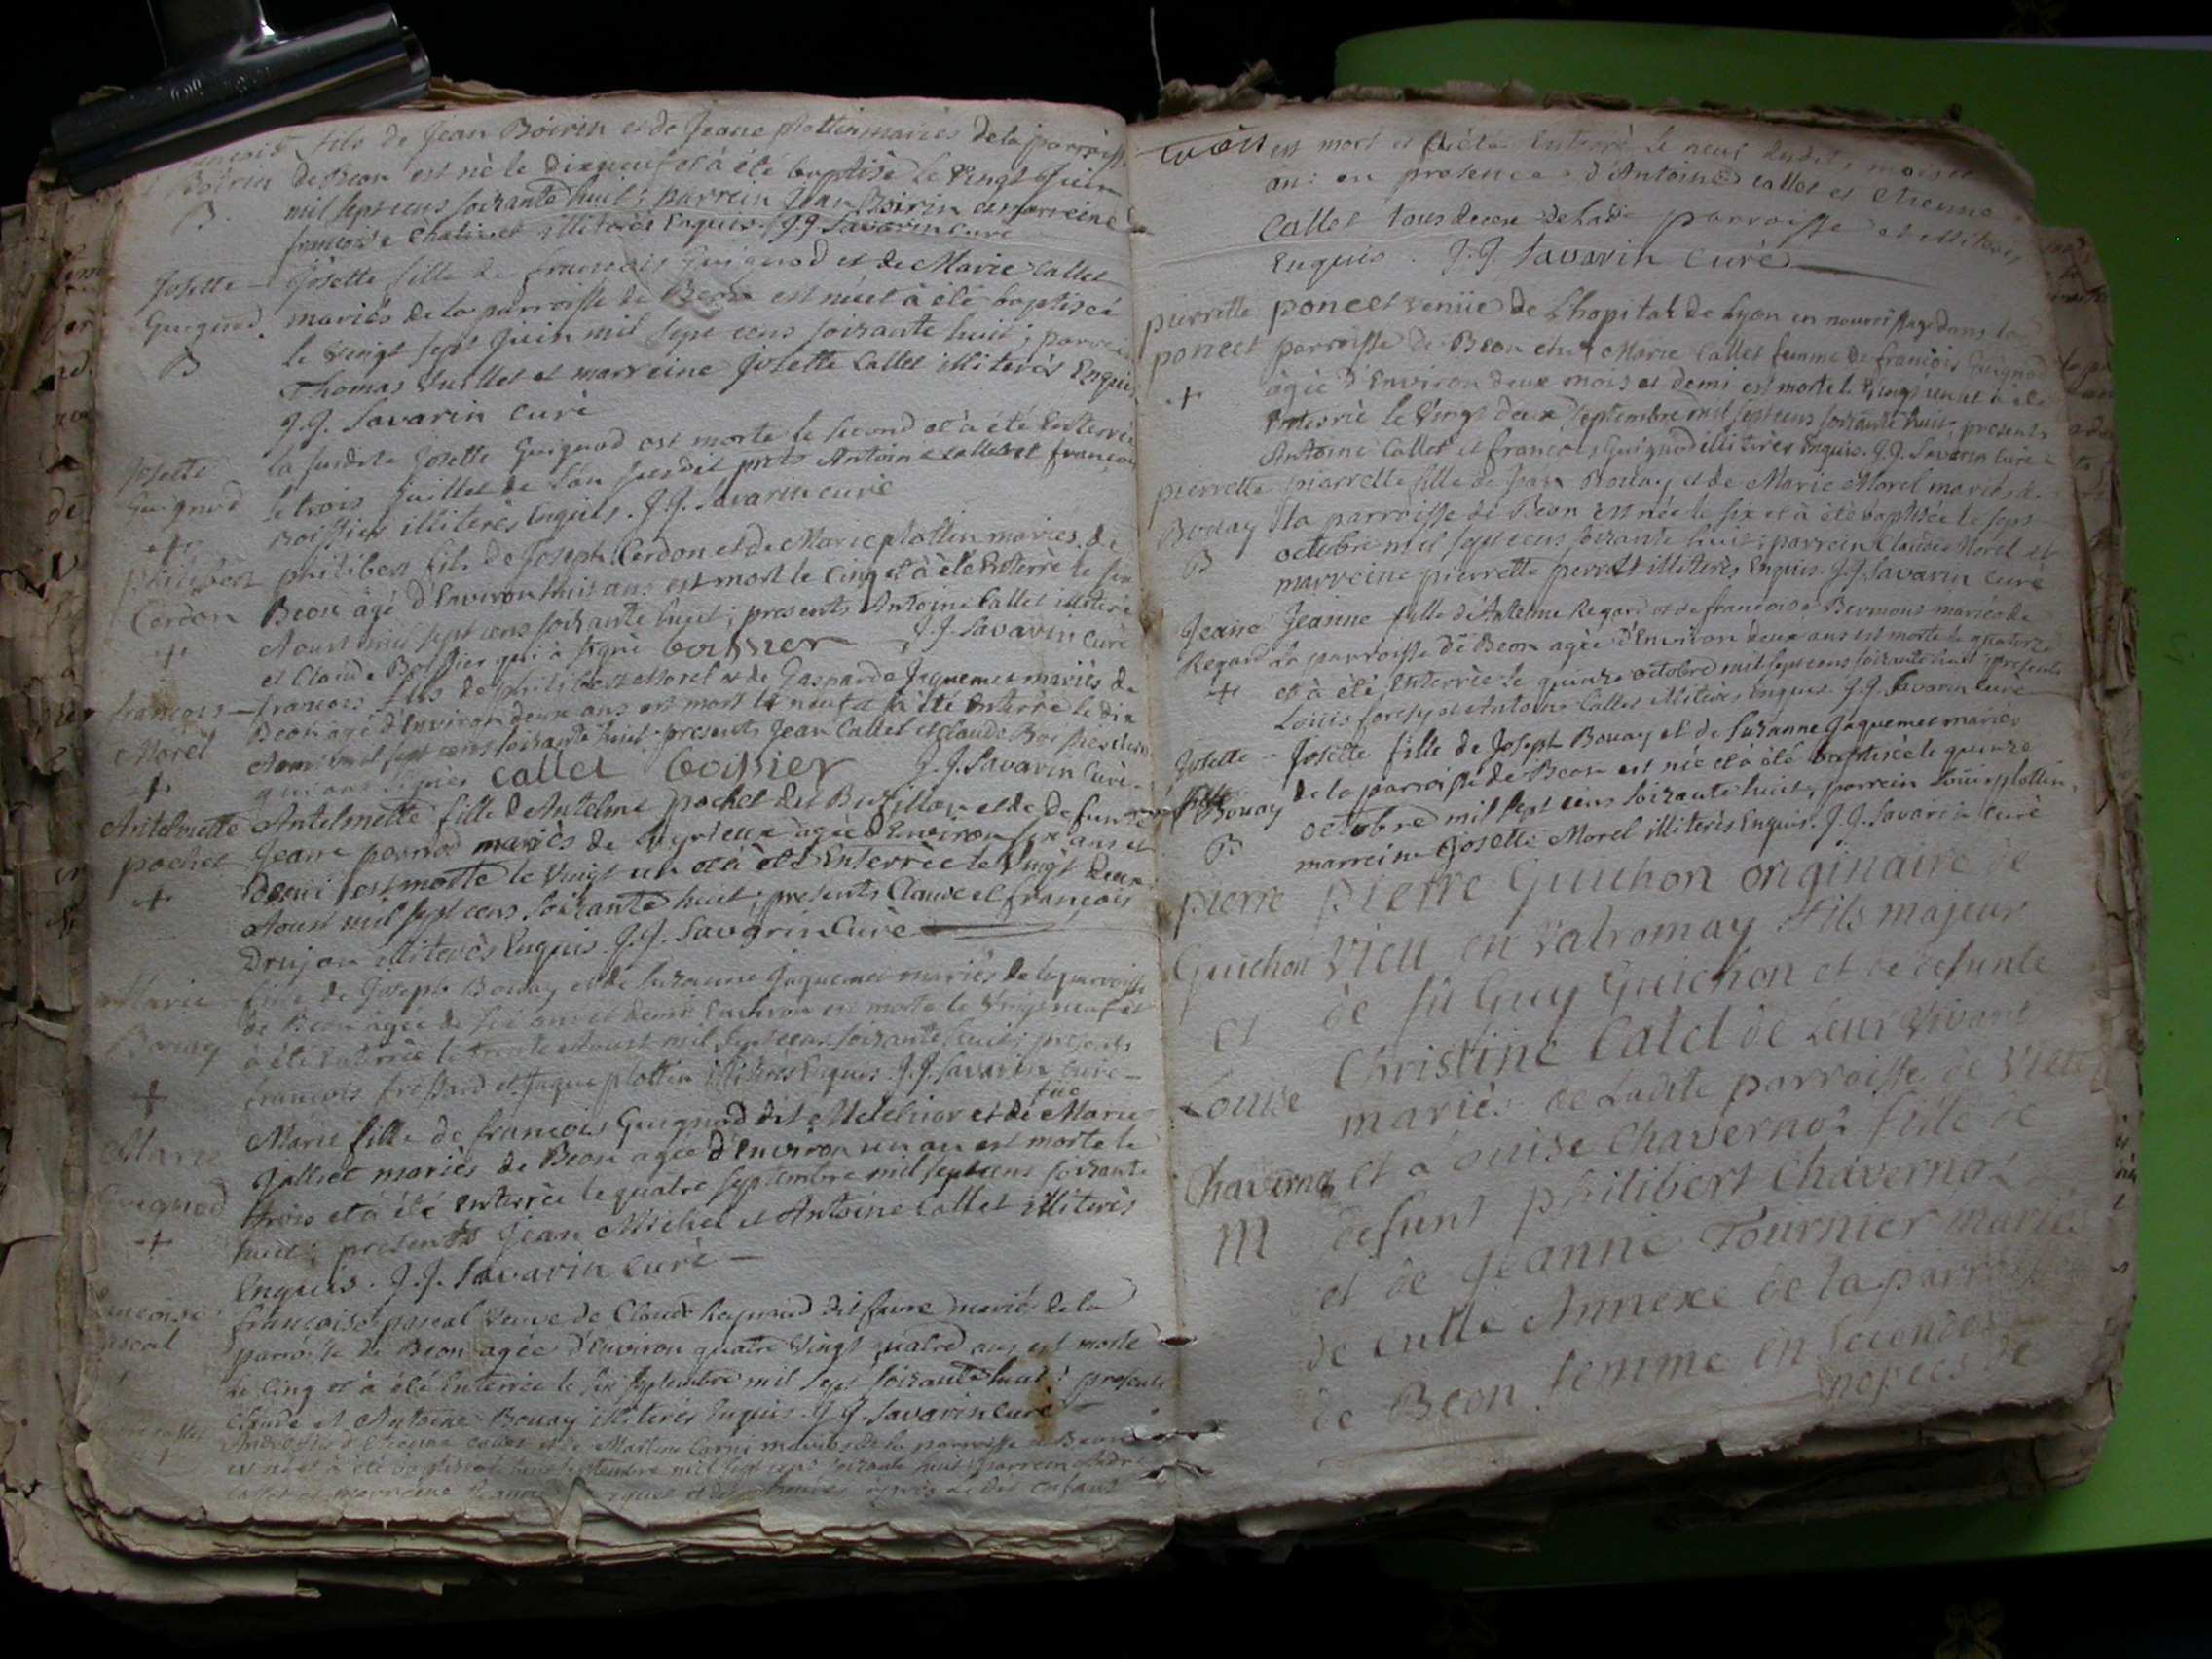 fils de Jean Boirin et de Jeane plottin mariès de la parroisse
Boirin de Beon est nè le dixneuf et à été baptisè le Vingt Juin
B. mil sept cens soixante huit ; parrein Jean Boirin et marreine
francoise illiterès Enquis. J.J. Savarin curè
Josette - Josette fille de francois Guignod et de Marie Callet
Guignod. mariès de la parroisse de Beon est née et à été baptiseé
B le Vingt sept Juin mil sept cens soixante huit ; parrein
Thomas Vuillet et marreine Josette Callet illiterès Enquis
J.J. Savarin Curè
Josette la susdite Josette Guignod est morte le second et à été Enterrèe
Guignod le trois Juillet de l'an susdit prts Antoine Callet et francois
+ Boissier illiterès Enquis. J.J. Savarin curè
philibert philibert fils de Joseph Cerdon et de Marie plottin mariès de
Cerdon Beon âgé d'Environ huit ans est mort le Cinq et à été Enterrè le six
+ Aoust mil sept cens soixante huit ; presents Antoine Callet illiterè
et Claude Boissier qui à signè boissier J.J. Savarin Curè
francois - francois fils de philibert Morel et de Gasparde Jaquemet mariès de
Morel Beon agé d'Environ deux ans est mort le neuf et à été Enterrè le dix
+ Aoust mil sept cens soixante huit presents Jean Callet et Claude Boissier
qui ont signès Callet boissier J.J. Savarin Curè
Antelmette Antelmette fille de Antelme pochet du et de defunte
pochet Jeane pernod mariès de agèe d'Environ six ans et
+ demi est morte le Vingt un et à été Enterrèe le Vingt deux
Aoust mil sept cens soixante huit ; presents Claude et francois
Drujon illiterès Enquis. J.J. Savarin Curè
Marie fille de Joseph Bouay et de Suzanne Jaquemet mariès de la parroisse
Bouay de Beon âgée de six ans et demi Environ est morte le Vingt neuf et
+ à été Enterrèe le trente Aoust mil sept cens soixante huit ; presents
francois frossard et Jaque plottin illiterès Enquis J.J. Savarin Curè -
Marie Marie fille de francois Guignod dit Melchior et de Marie
Guignod Jalliet mariès de Beon agèe d'Environ un an est morte le
+ trois et à été Enterrèe le quatre septembre mil sept cens soixante
huit ; presents Jean Michel et Antoine Callet illiterès
Enquis. J.J. Savarin Curè -
francoise francoise pascal Veuve de Claude Reymond dit favre mariès de la
pascal parroisse de Beon agèe d'Environ quatre Vingt quatre ans est morte
Le Cinq et à été Enterrèe le six septembre mil sept soixante huit ; presents
Claude et Antoine Bouay illiterès Enquis. J.J. Savarin Curè
Callet fils d'Etienne Callet et de Martine mariès de la parroisse de Beon
est né et à été septembre mil sept cens soixante huit parrein
Callet et marreine enfant
est mort et à été Enterrè le neuf dudit mois et
an : en presence d'Antoine Callet et Etienne
Callet tous deux de lade parroisse et illiterès
Enquis. J.J. Savarin Curè
pierrette poncet venüe de Lhopital de Lyon en nourrissage dans la
poncet parroisse de Beon chez Marie Callet femme de francois Guignod
+ âgèe d'Environ deux mois et demi est morte le Vingt un et à été
Enterrèe le Vingt deux septembre mil sept cens soixante huit, presents
Antoine Callet et francois Guignod illiterès Enquis. J.J. Savarin Curè
pierrette pierrette fille de Bouay et de Marie Morel mariès de
Bouay la parroisse de Beon est née le six et à été baptisèe le sept
B octobre mil sept cens soixante huit ; parrein Claude Morel et
marreine pierrette perret illiterès Enquis. J.J. Savarin Curè
Jeane Jeanne fille d'Antelme Regard et de francoise Bermont mariès de
Regard la parroisse de Beon agèe d'Environ deux ans est morte le quatorze
+ et à été Enterrèe le quinze octobre mil sept cens soixante huit presents
Louis et Antoine Callet illiterès Enquis. J.J. Savarin Curè
Josette - Josette fille de Joseph Bouay et de Suzanne Jaquemet mariès
Bouay de la parroisse de Beon est née et à été baptisèe le quinze
B octobre mil sept cens soixante huit, parrein Louis plottin,
marreine Josette Morel illiterès Enquis. J.J. Savarin Curè
pierre pierre Guichon originaire de
Guichon Vieu en Valromay fils majeur
de fû Guy Guichon et de defunte
et Christine Catel de leur Vivant
Louise mariès de Ladite parroisse de Vieu
Chavernoz et Louise Chavernoz fille de
M defunt philibert Chavernoz
et de Jeanne Tournier mariès
de Culle Annexe de la parroisse
de Beon femme en secondes
nopces de